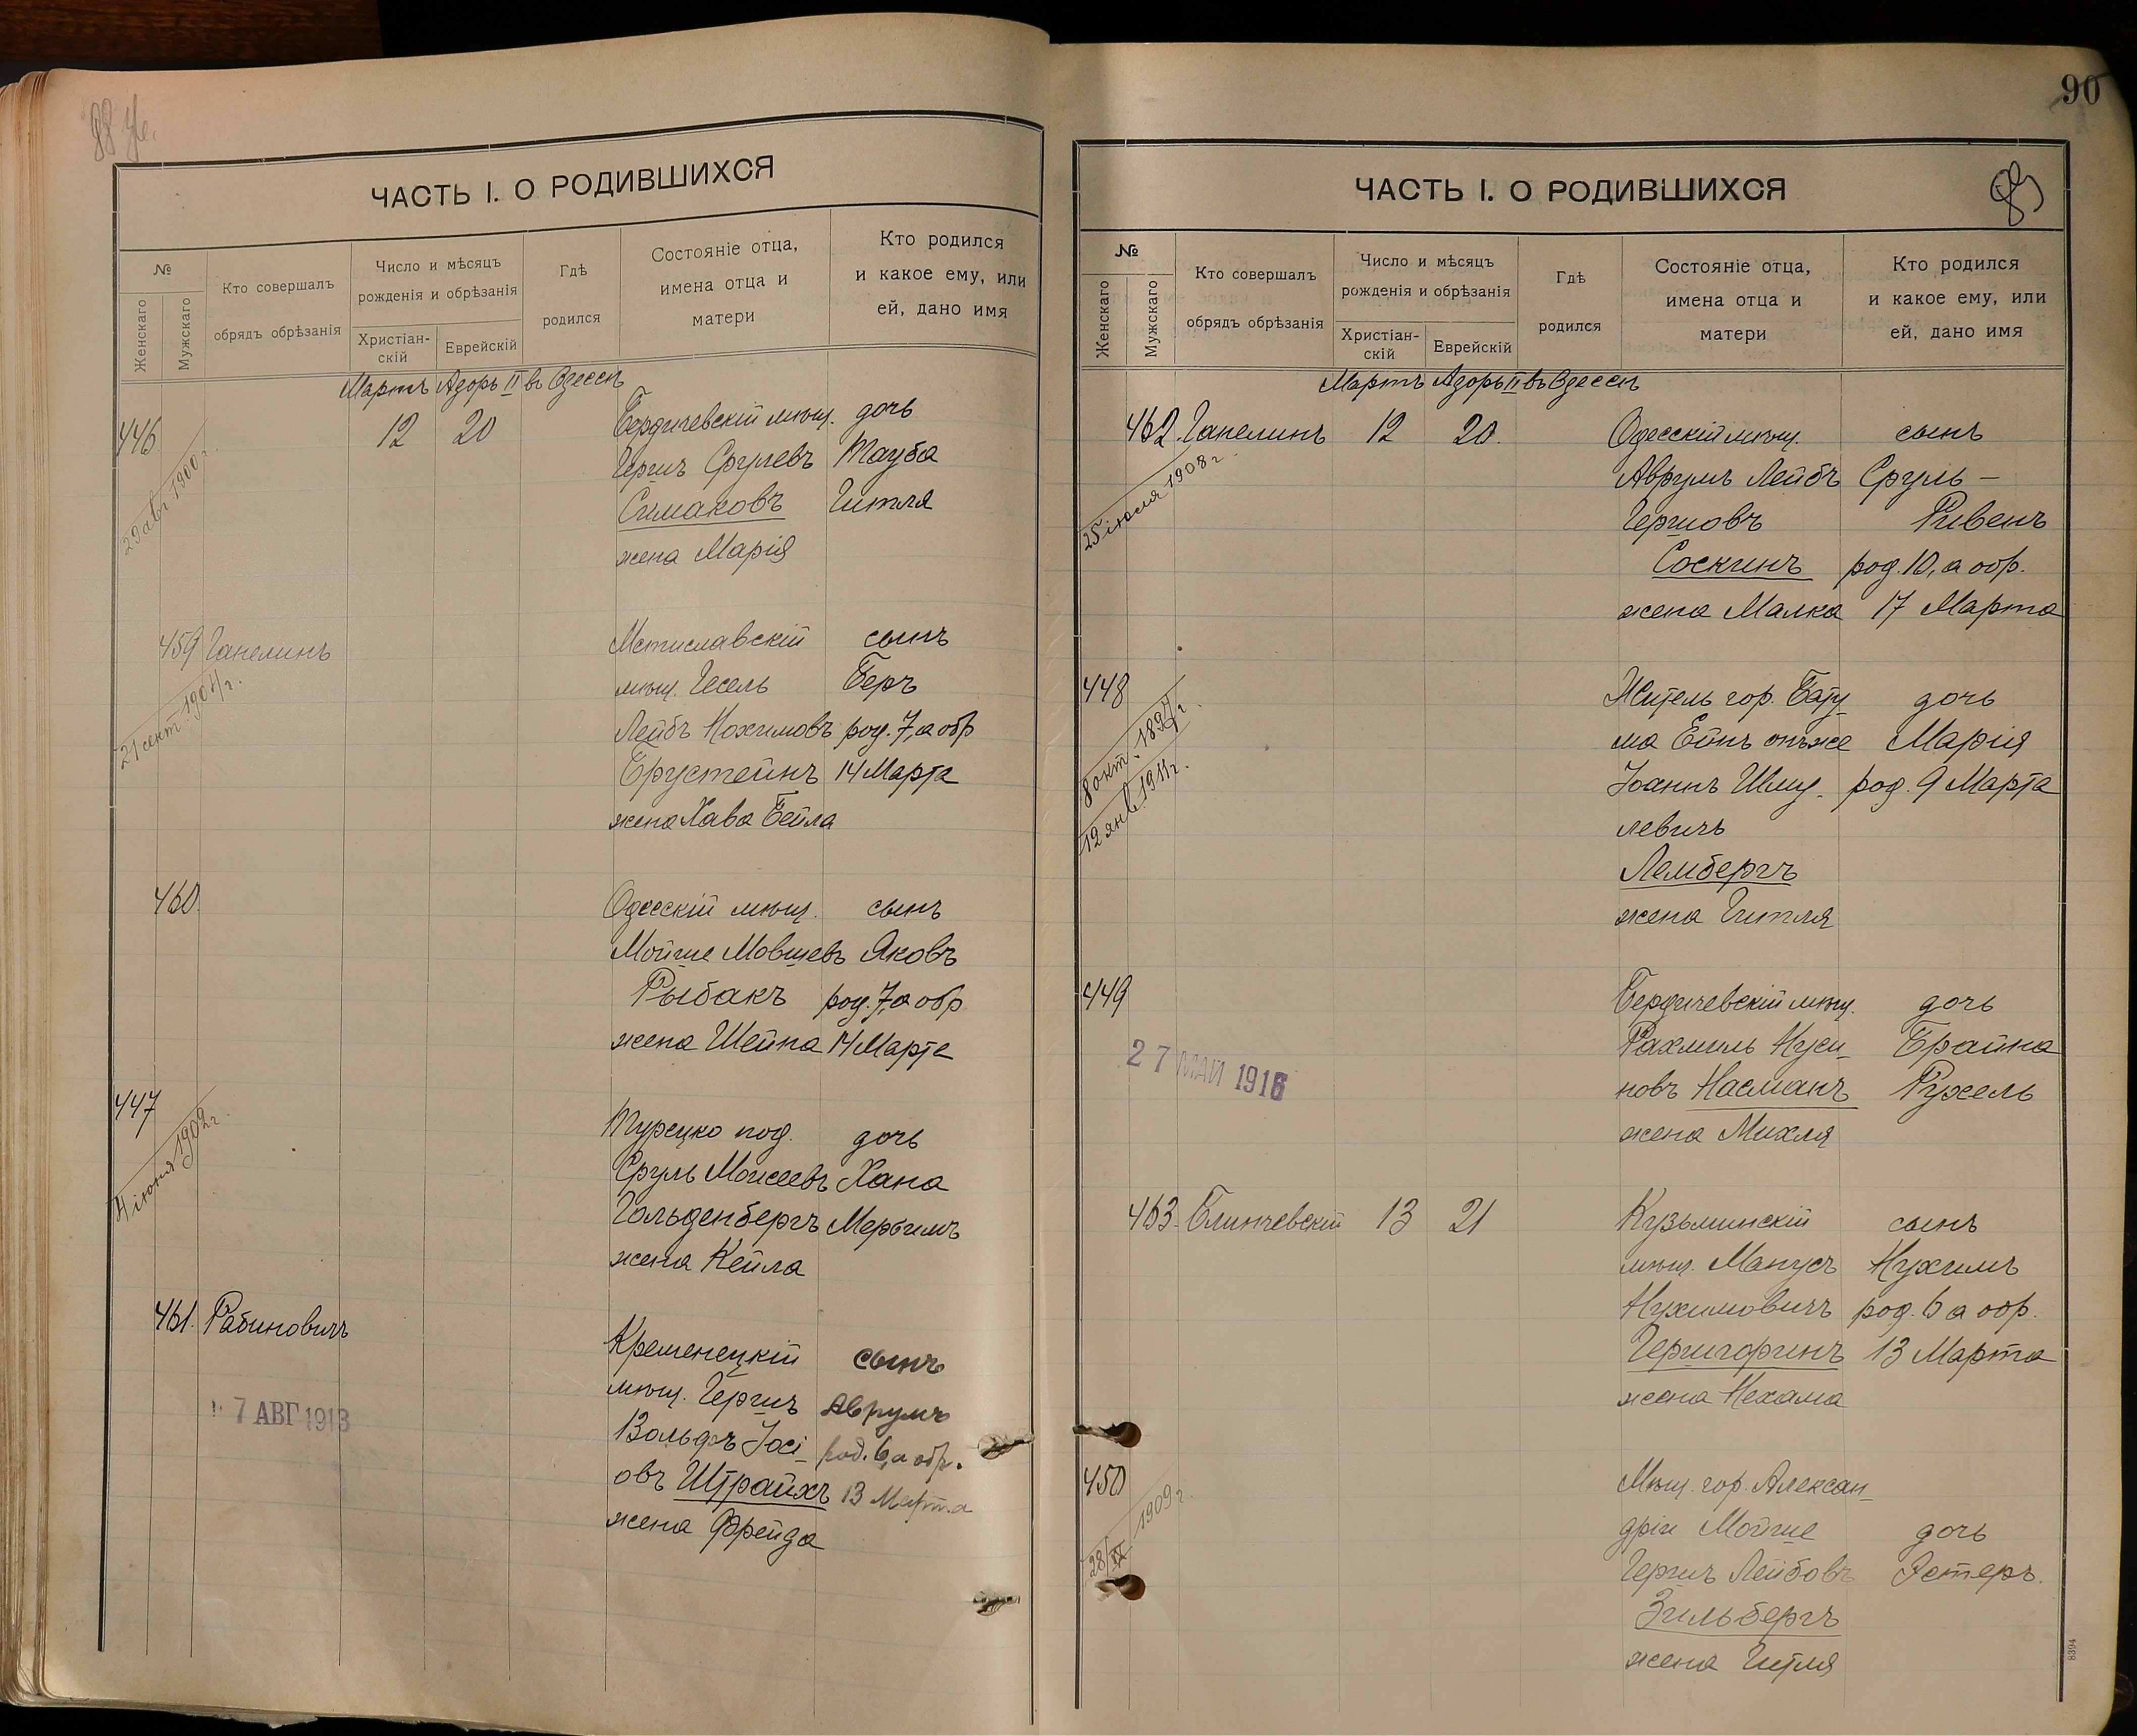 88 об.
ЧАСТЬ I. О РОДИВШИХСЯ
№
Женскаго
Мужскаго
Кто совершалъ
обрядъ обрѣзанія
Число и мѣсяцъ
рожденія и обрѣзанія
Христіан-
скій
Еврейскій
Гдѣ
родился
Состояніе отца,
имена отца и
матери
Кто родился
и какое ему, или
ей, дано имя
Мартъ Адоръ II въ Одессѣ
446 12 20 Бердичевскій мѣщ. дочь
Гершъ Срулевъ Тауба
Симаковъ Гитля
жена Марія
29 авг 1900 г.
459 Ганелинъ Мстиславскій сынъ
мѣщ. Гесель Беръ
Лейбъ Нохимовъ род. 7, а обр
Брустейнъ 14 Марта
жена Хава Бейла
21 сент. 1904 г.
460. Одесскій мѣщ. сынъ
Мойше Мовшевъ Яковъ
Рыбакъ род. 7, а обр
жена Шейна 14 Марта
447 Турецко под. дочь
Сруль Моисеевъ Хана
Гольденбергъ Мерьимъ
жена Кейла
4 іюня 1902 г.
461. Рабиновичъ Кременецкій сынъ
мѣщ. Гершъ Аврумъ
Вольфъ Іосі- род. 6, а обр.
овъ Штрайхъ 13 Марта
жена Фрейда
7 АВГ 1913
90
89
ЧАСТЬ I. О РОДИВШИХСЯ
№
Женскаго
Мужскаго
Кто совершалъ
обрядъ обрѣзанія
Число и мѣсяцъ
рожденія и обрѣзанія
Христіан-
скій
Еврейскій
Гдѣ
родился
Состояніе отца,
имена отца и
матери
Кто родился
и какое ему, или
ей, дано имя
Мартъ Адоръ II въ Одессѣ
462. Ганелинъ 12 20. Одесскій мѣщ. сынъ
Аврумъ Лейбъ Сруль —
Гершовъ Ривенъ
Соскинъ род. 10, а обр.
жена Малка 17 Марта
25 іюля 1908 г.
448 Житель гор. Бату- дочь
ма Ейнъ онъже Марія
Іоаннъ Шму- род. 9 Марта
левичъ
Лембергъ
жена Гитля
8 окт. 1897 г.
12 янв 1911 г.
449 Бердичевскій мѣщ. дочь
Рахмиль Нуси- Брайна
новъ Насманъ Рухель
жена Михля
27 МАЙ 1916
463. Блинчевскій 13 21 Кузьминскій сынъ
мѣщ. Манусъ Нухимъ
Нухимовичъ род. 6 а обр.
Гершгоринъ 13 Марта
жена Нехама
450 Мѣщ. гор. Алексан-
дріи Мойше дочь
Гершъ Лейбовъ Эстеръ.
Зильбергъ
жена Гитля
28/IX 1909 г.
8394